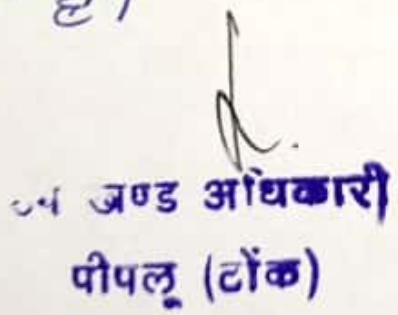 है।
जण्ड अधिकारी
पीपलू (टोंक)